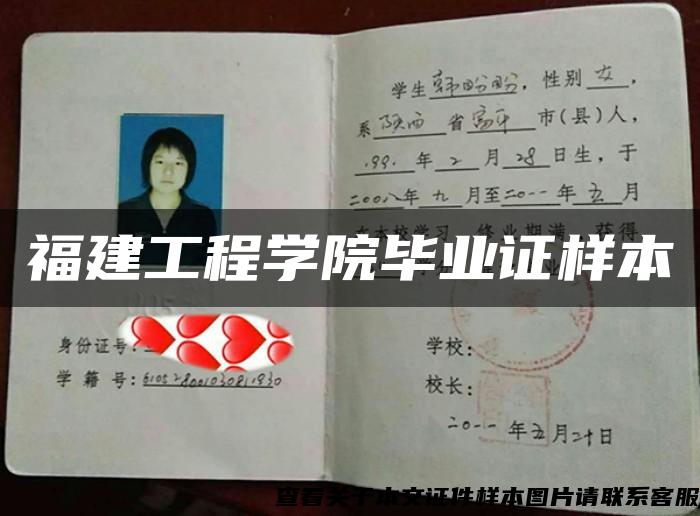 学生 韩盼盼，性别 女，
系 陕西 省 富平 市(县)人，
1991年2月28日生，于
二00八年九月至二0一一年五月
在本校学习，修业期满，获得
福建工程学院毕业证样本
身份证号：
学籍号：
学校：
校长：
二0一一年五月二十日
查看关于本文证件样本图片请联系客服